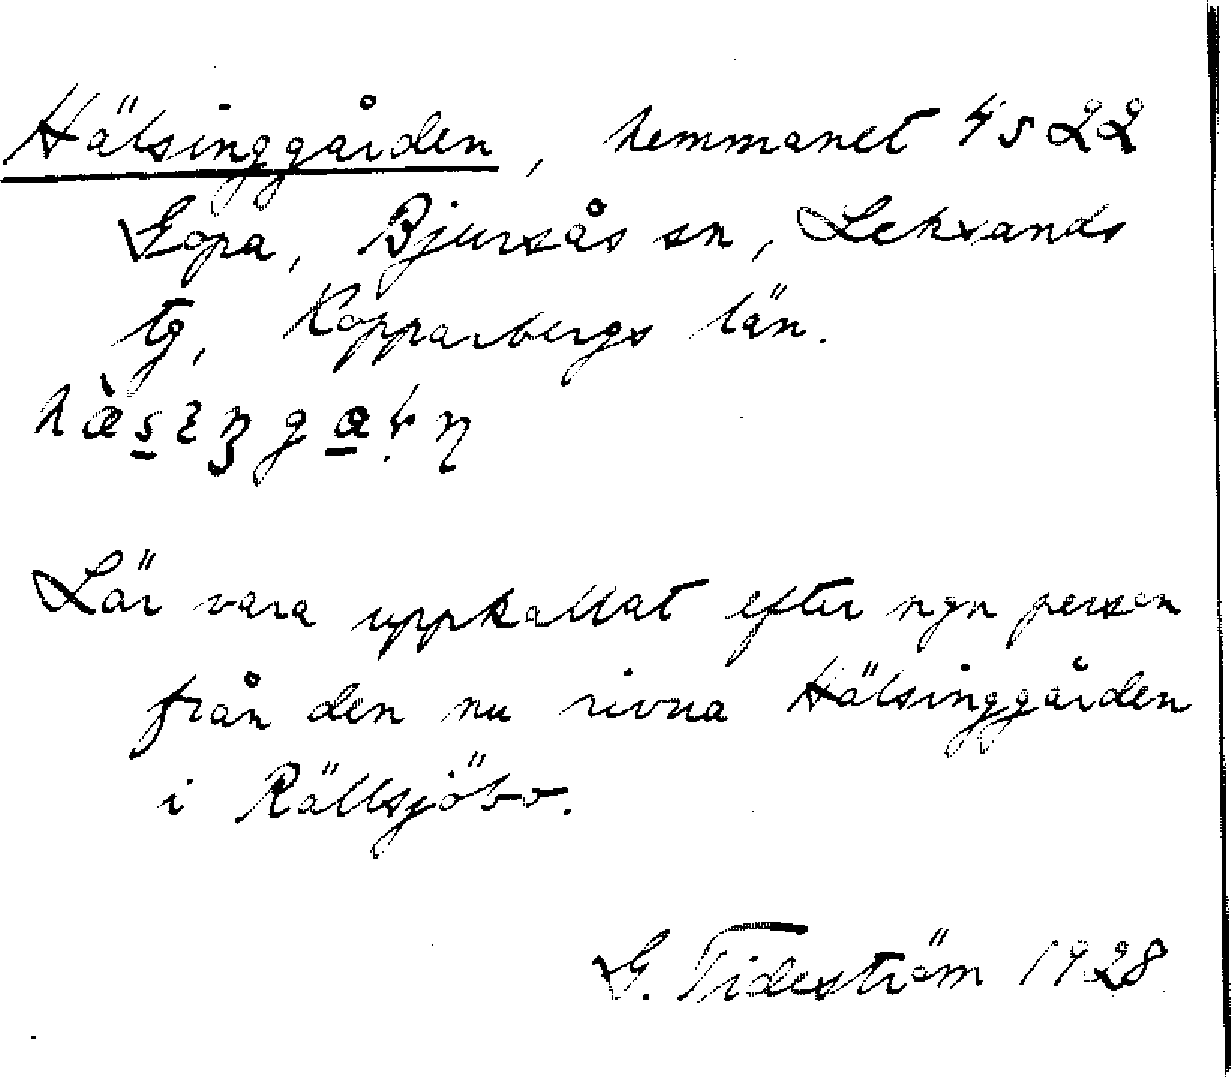 Hälsinggården, hemmanet 4 s 22
Gopa, Bjursås sn, Leksands
tg, Kopparbergs län.
Lär vara uppkallat efter ngn person
från den nu rivna Hälsinggården
i Rällsjöbo.
G. Tideström 1928